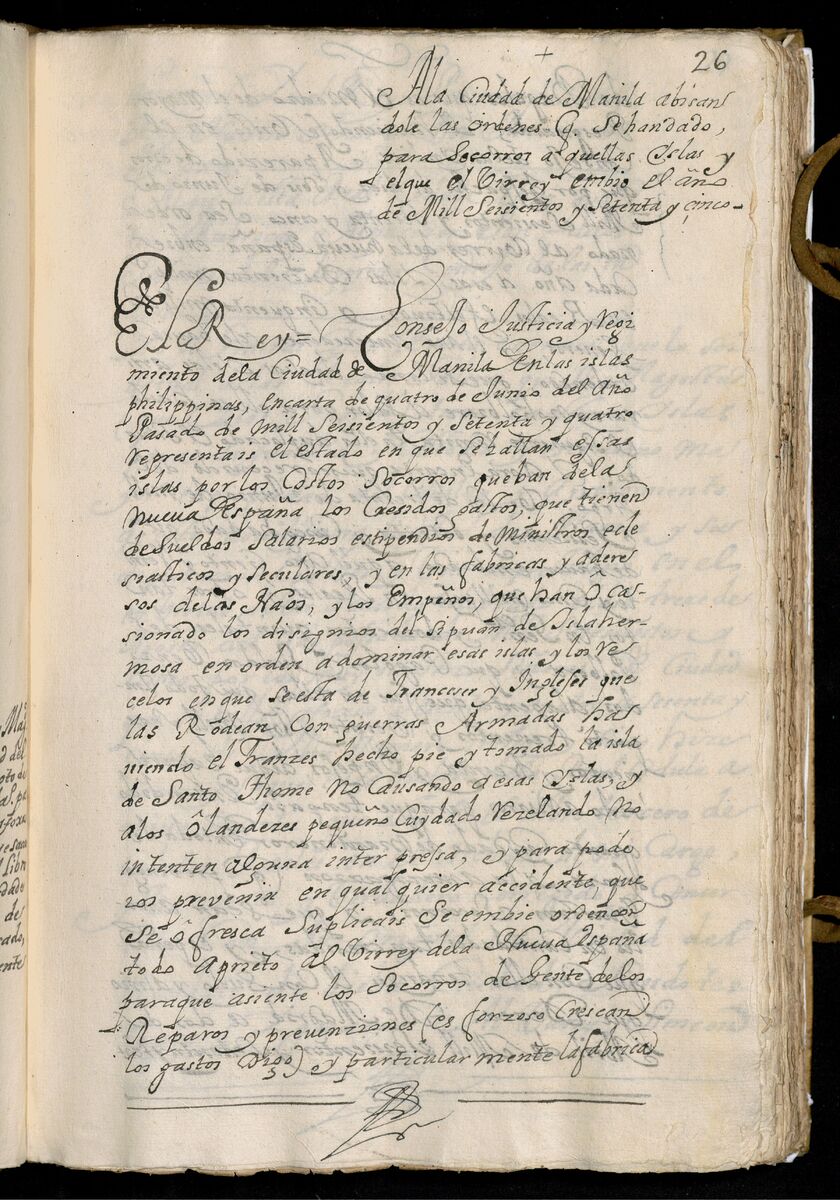 26
Ala Ciudad de Manila abisan
dole las ordenes q. se han dado,
para Socorros aquellas Yslas y
el que el Virrey embio el año
de Mill Seisientos y Setenta y çinco
El Rey = Consejo Justicia y Regi
miento dela Ciudad de Manila En las islas
philippinas, en carta de quatro de Junio del Año
Pasado de mill Seisientos y Setenta y quatro
representais el estado en que se hallan essas
islas por los Cortos Socorros que ban dela
nueva España los Cresidos gastos, que tienen
de Sueldos Salarios estipendios de Ministros ecle
siasticos y seculares, y en las fabricas y adere
sos delas Naos, y los Empeños, que han Ocas-
sionado los disignios del sipuan de Isla her-
mosa en orden adominar esas islas y los re
celos en que se esta de Frances y Ingleses que
las Rodean Con guerras Armadas has
viendo el Franzes hecho pie y tomado la isla
de Santo Thome no Causando a esas Yslas, y
alos Olandezes pequeño Cuydado rezelando no
intenten alguna inter pressa, y para pode
ros prevenir en qualquier accidente, que
se ofresca Suplicais se embie orden con
todo Aprieto al Virrey dela Nueva España
paraque asiente los Socorros de Gente delos
Reparos y prevenziones (es forzoso Crescan
los gastos Digo) y particular mente la fabrica
Ma
d del
de
Libro
dado
de